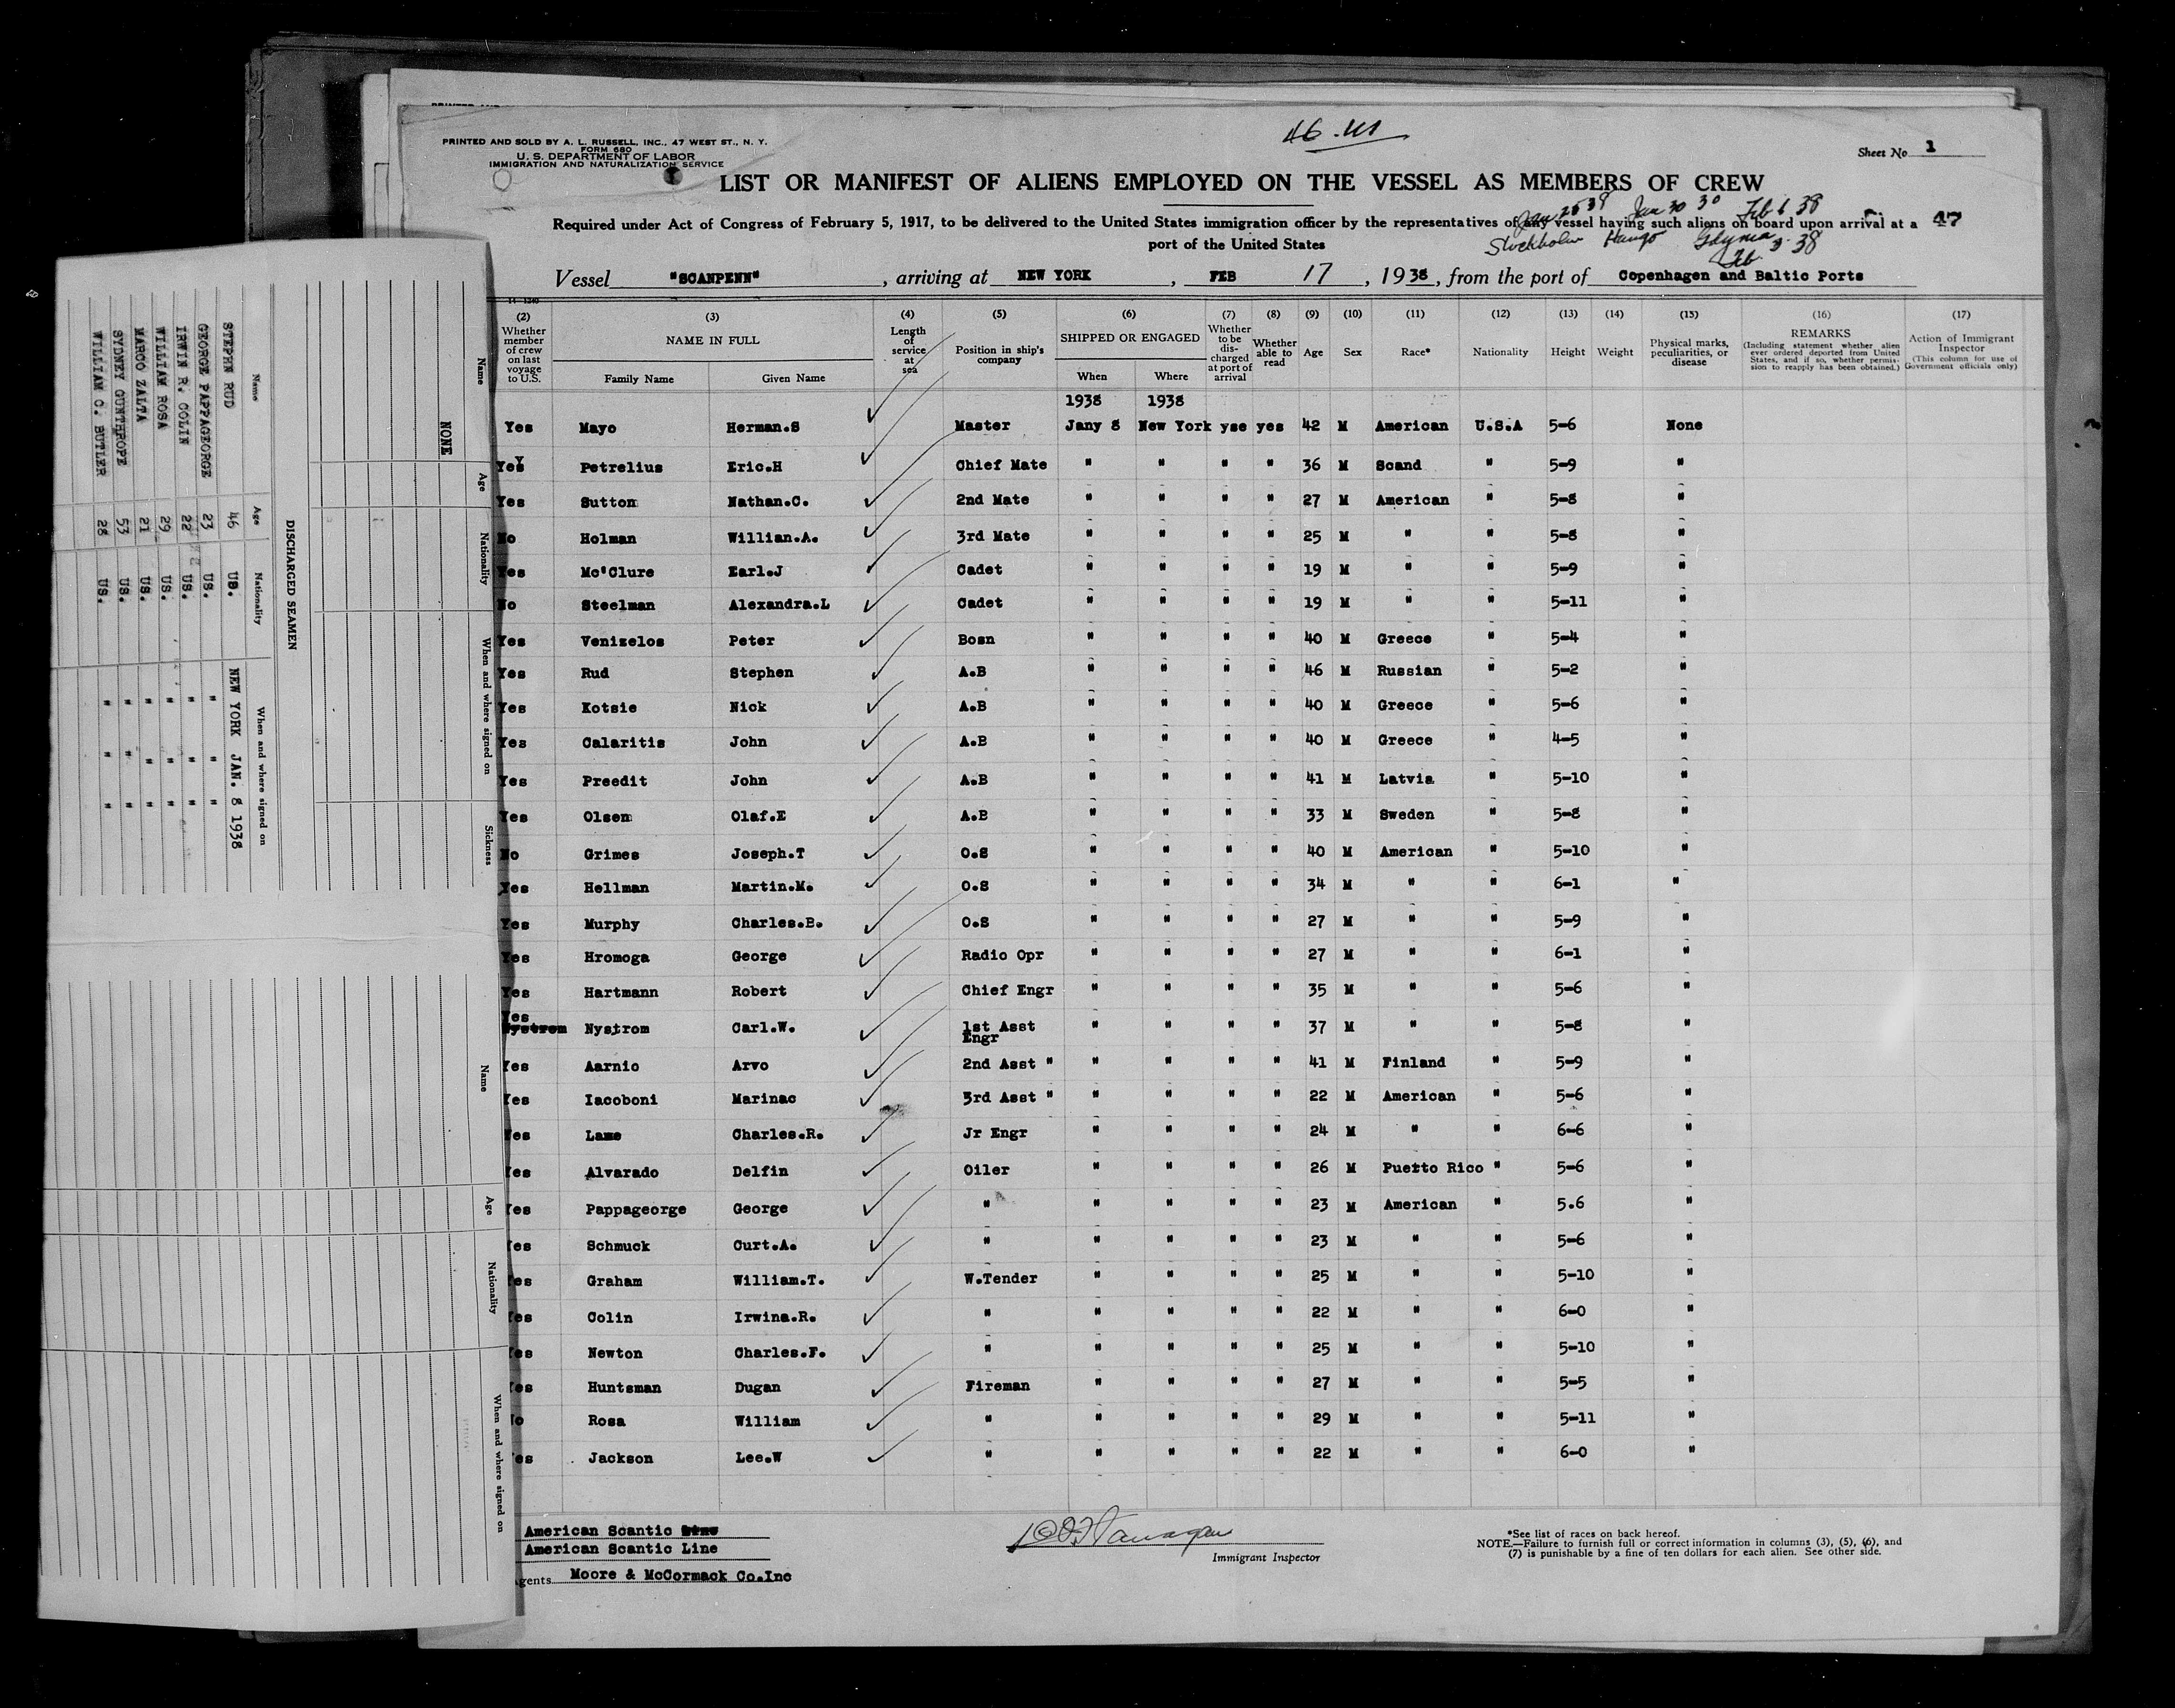 46.
PRINTED AND SOLD BY A. L. RUSSELL, INC., 47 WEST ST., N. Y.
FORM 680
U. S. DEPARTMENT OF LABOR
IMMIGRATION AND NATURALIZATION SERVICE
Sheet No 1
LIST OR MANIFEST OF ALIENS EMPLOYED ON THE VESSEL AS MEMBERS OF CREW
Jan 30 30 Feb 6 38
Required under Act of Congress of February 5, 1917, to be delivered to the United States immigration officer by the representatives of any vessel having such aliens on board upon arrival at a 47
port of the United States
Stockholm Hango Gdynia Feb 38
Vessel "SCANPENN", arriving at NEW YORK, FEB 17, 1938, from the port of Copenhagen and Baltic Ports
(2) (3) (4) (5) (6) (7) (8) (9) (10) (11) (12) (13) (14) (15) (16) (17)
Whether member of crew on last voyage to U.S. NAME IN FULL Family Name Given Name Length of service at sea Position in ship's company SHIPPED OR ENGAGED When Where Whether to be discharged at port of arrival Whether able to read Age Sex Race* Nationality Height Weight Physical marks, peculiarities, or disease REMARKS (Including statement whether alien ever ordered deported from United States, and if so, whether permission to reapply has been obtained.) Action of Immigrant Inspector (This column for use of Government officials only)
1938 1938
Yes Mayo Herman.S Master Jany 8 New York yse yes 42 M American U.S.A 5-6 None
Yes Petrelius Eric.H Chief Mate " " " " 36 M Scand " 5-9 "
Yes Sutton Nathan.C. 2nd Mate " " " " 27 M American " 5-8 "
No Holman Willian.A. 3rd Mate " " " " 25 M " " 5-8 "
Yes Mc'Clure Earl.J Cadet " " " " 19 M " " 5-9 "
No Steelman Alexandra.L Cadet " " " " 19 M " " 5-11 "
Yes Venizelos Peter Bosn " " " " 40 M Greece " 5-4 "
Yes Rud Stephen A.B " " " " 46 M Russian " 5-2 "
Yes Kotsie Nick A.B " " " " 40 M Greece " 5-6 "
Yes Calaritis John A.B " " " " 40 M Greece " 4-5 "
Yes Preedit John A.B " " " " 41 M Latvia " 5-10 "
Yes Olsen Olaf.E A.B " " " " 33 M Sweden " 5-8 "
No Grimes Joseph.T O.S " " " " 40 M American " 5-10 "
Yes Hellman Martin.M. O.S " " " " 34 M " " 6-1 "
Yes Murphy Charles.B. O.S " " " " 27 M " " 5-9 "
Yes Hromoga George Radio Opr " " " " 27 M " " 6-1 "
Yes Hartmann Robert Chief Engr " " " " 35 M " " 5-6 "
Yes Nystrom Nystrom Carl.W. 1st Asst Engr " " " " 37 M " " 5-8 "
Yes Aarnio Arvo 2nd Asst " " " " " 41 M Finland " 5-9 "
Yes Iacoboni Marinac 3rd Asst " " " " " 22 M American " 5-6 "
Yes Lame Charles.R. Jr Engr " " " " 24 M " " 6-6 "
Yes Alvarado Delfin Oiler " " " " 26 M Puerto Rico " 5-6 "
Yes Pappageorge George " " " " " 23 M American " 5.6 "
Yes Schmuck Curt.A. " " " " " 23 M " " 5-6 "
Yes Graham William.T. W.Tender " " " " 25 M " " 5-10 "
Yes Colin Irwina.R. " " " " " 22 M " " 6-0 "
Yes Newton Charles.F. " " " " " 25 M " " 5-10 "
Yes Huntsman Dugan Fireman " " " " 27 M " " 5-5 "
No Rosa William " " " " " 29 M " " 5-11 "
Yes Jackson Lee.W " " " " " 22 M " " 6-0 "
American Scantic Line
American Scantic Line
Agents Moore & McCormack Co.Inc
Immigrant Inspector
*See list of races on back hereof.
NOTE.—Failure to furnish full or correct information in columns (3), (5), (6), and
(7) is punishable by a fine of ten dollars for each alien. See other side.
Name Age Nationality When and where signed on Sickness
NONE
DISCHARGED SEAMEN
Name Age Nationality When and where signed on
STEPHN RUD 46 US. NEW YORK JAN. 8 1938
GEORGE PAPPAGEORGE 23 US. " " "
IRWIN R. COLIN 22 US. " " "
WILLIAM ROSA 29 US. " " "
MARCO ZALTA 21 US. " " "
SYDNEY GUNTHROPE 53 US. " " "
WILLIAM C. BUTLER 28 US. " " "
Name Age Nationality When and where signed on